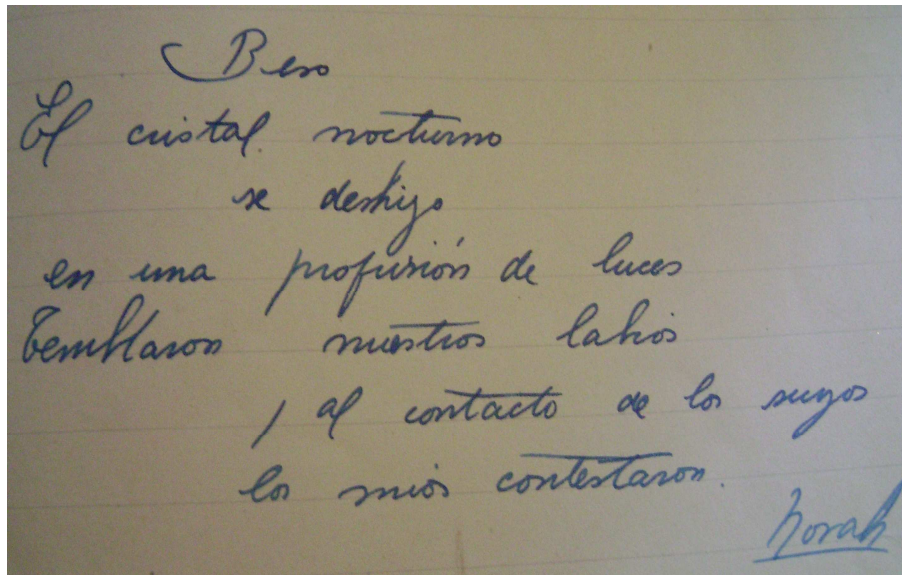 Beso
El cristal nocturno
se deshizo
en una profusión de luces
Temblaron nuestros labios
, al contacto de los suyos
los mios contestaron.
Norah